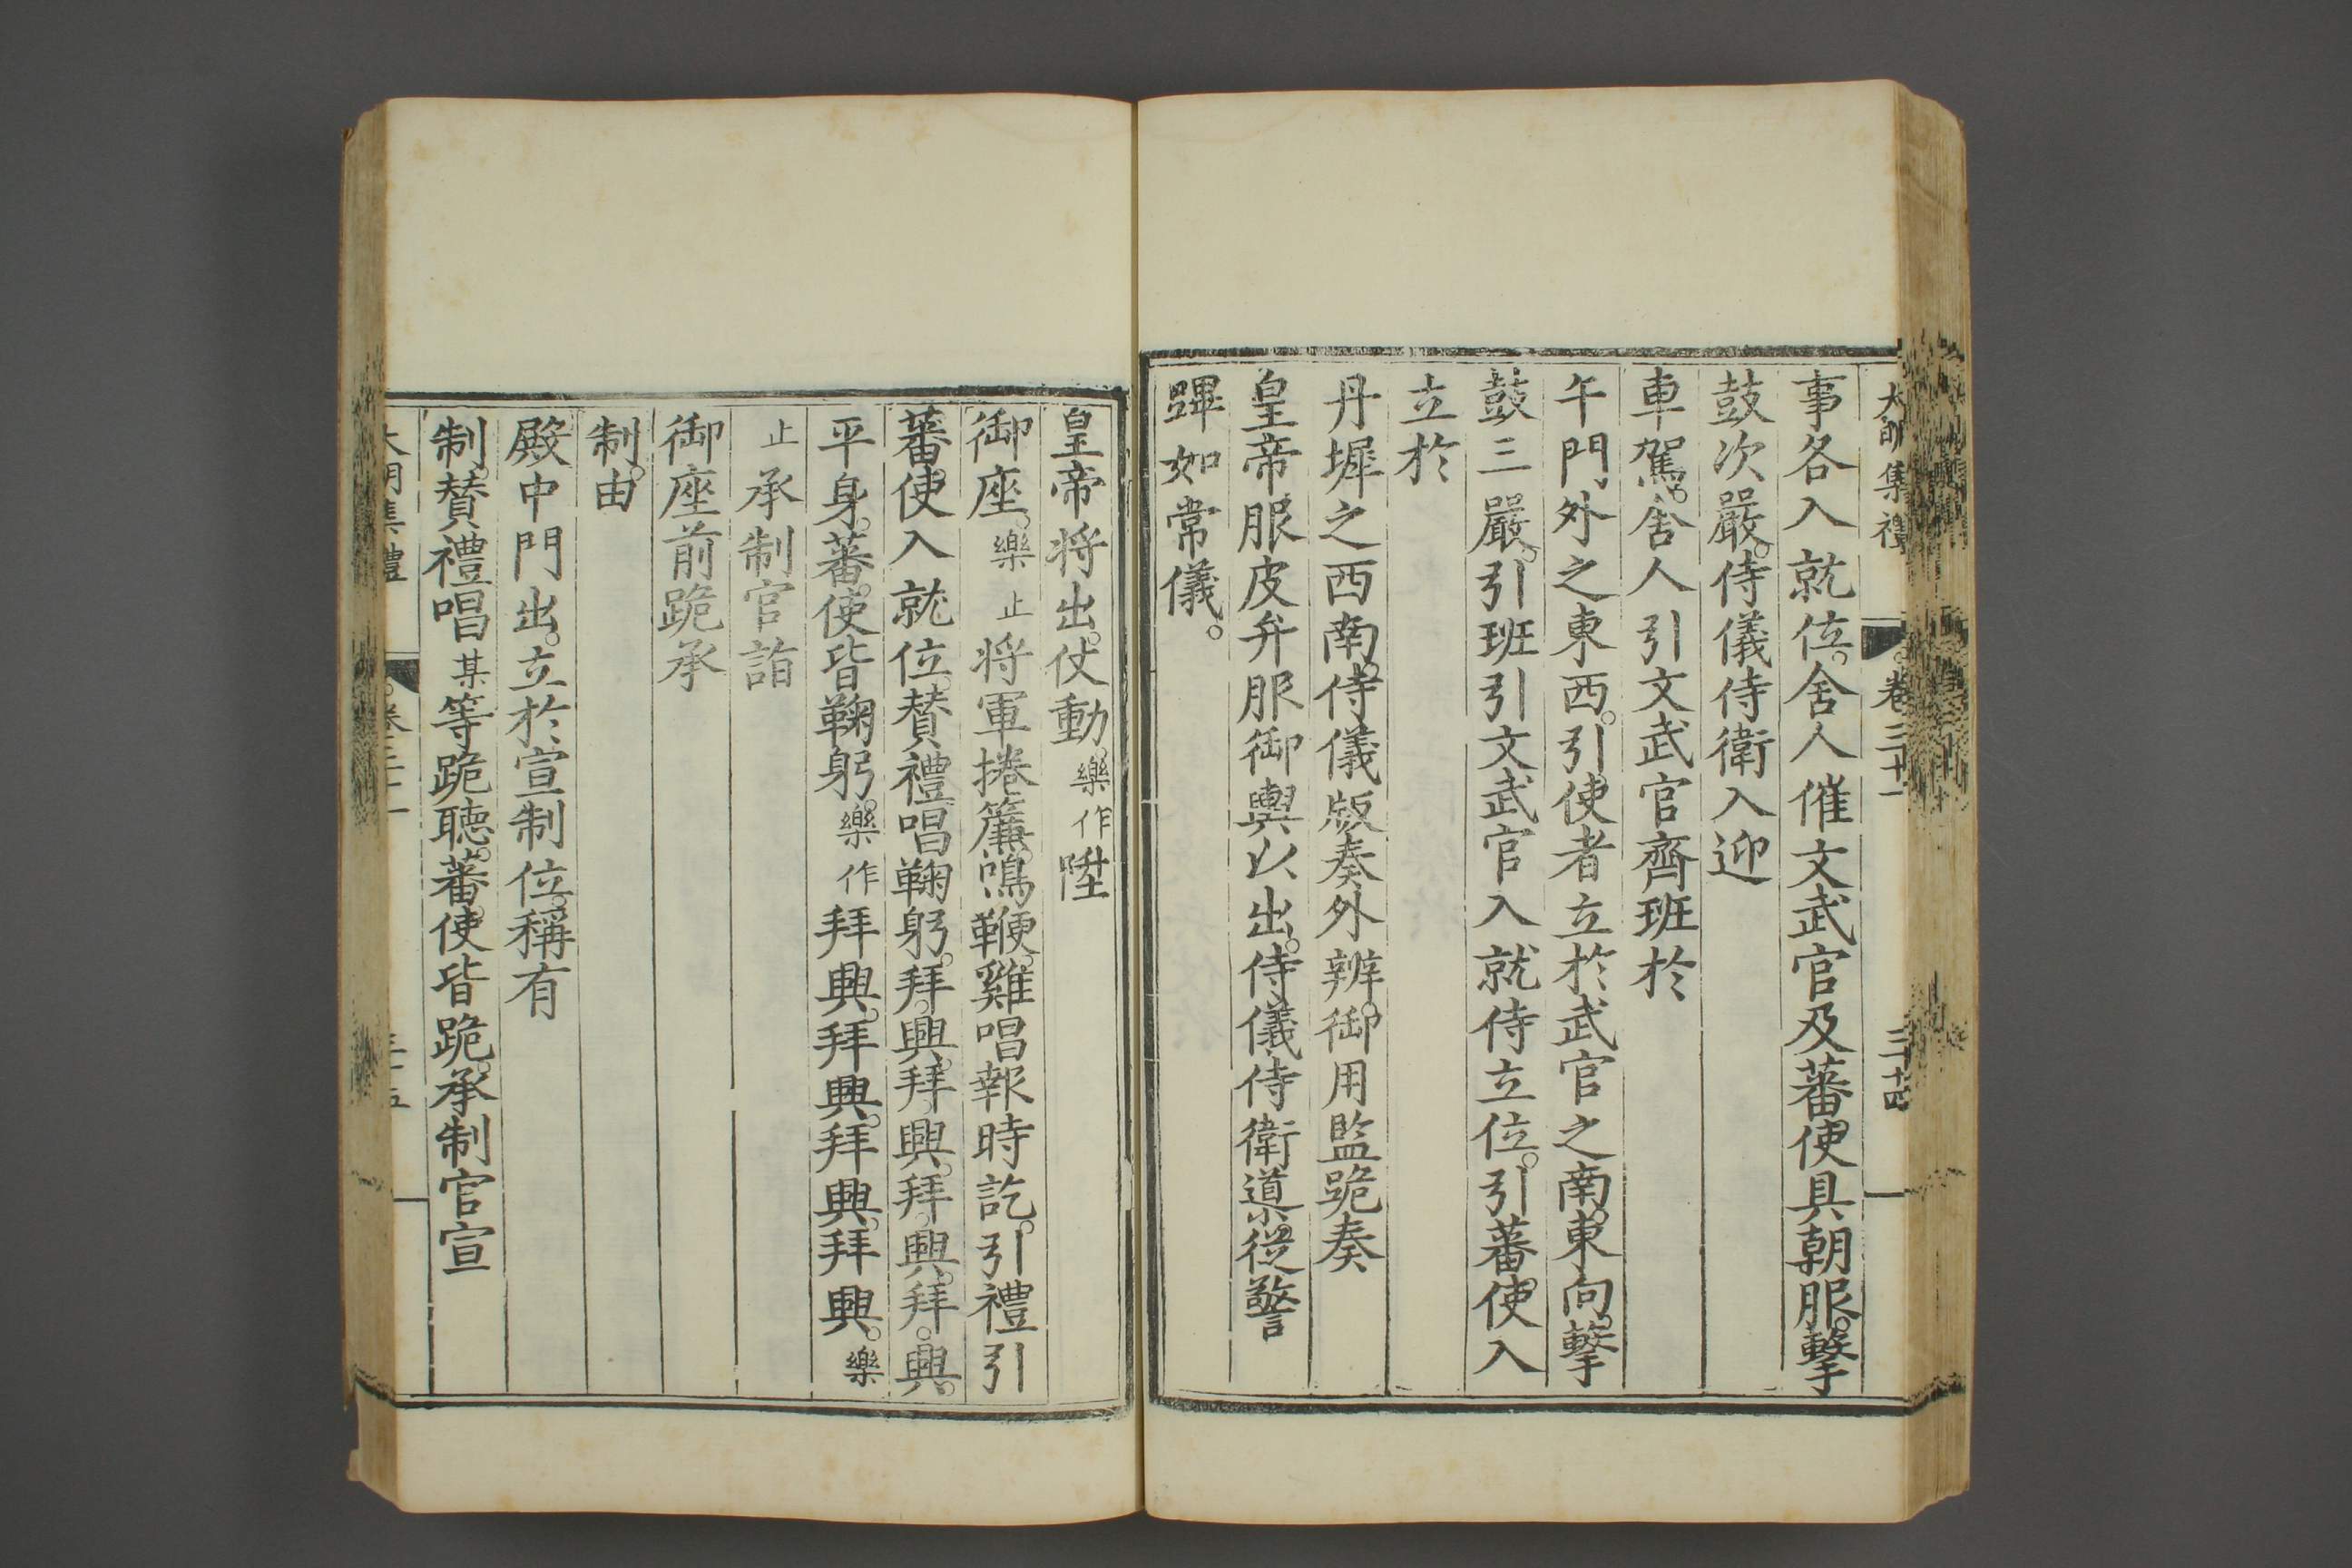 大明集禮 卷三十一 三十四
事各入就位。舍人催文武官及蕃使具朝服。擊
鼓次嚴。侍儀侍衛入迎
車駕。舍人引文武官齊班於
午門外之東西。引使者立於武官之南。東向。擊
鼓三嚴。引班引文武官入就侍立位。引蕃使入
立於
丹墀之西南。侍儀版奏外辦。御用監跪奏
皇帝服皮弁服御輿以出。侍儀侍衛導從警
蹕如常儀。
皇帝將出。仗動。樂作陞
御座。樂止將軍捲簾。鳴鞭。雞唱報時訖。引禮引
蕃使入就位。贊禮唱鞠躬。拜。興。拜。興。拜。興。拜。興。
平身。蕃使皆鞠躬。樂作拜興。拜興。拜興。拜興。樂
止承制官詣
御座前跪承
制。由
殿中門出。立於宣制位。稱有
制。贊禮唱某等跪聽。蕃使皆跪。承制官宣
大明集禮 卷三十一 三十五